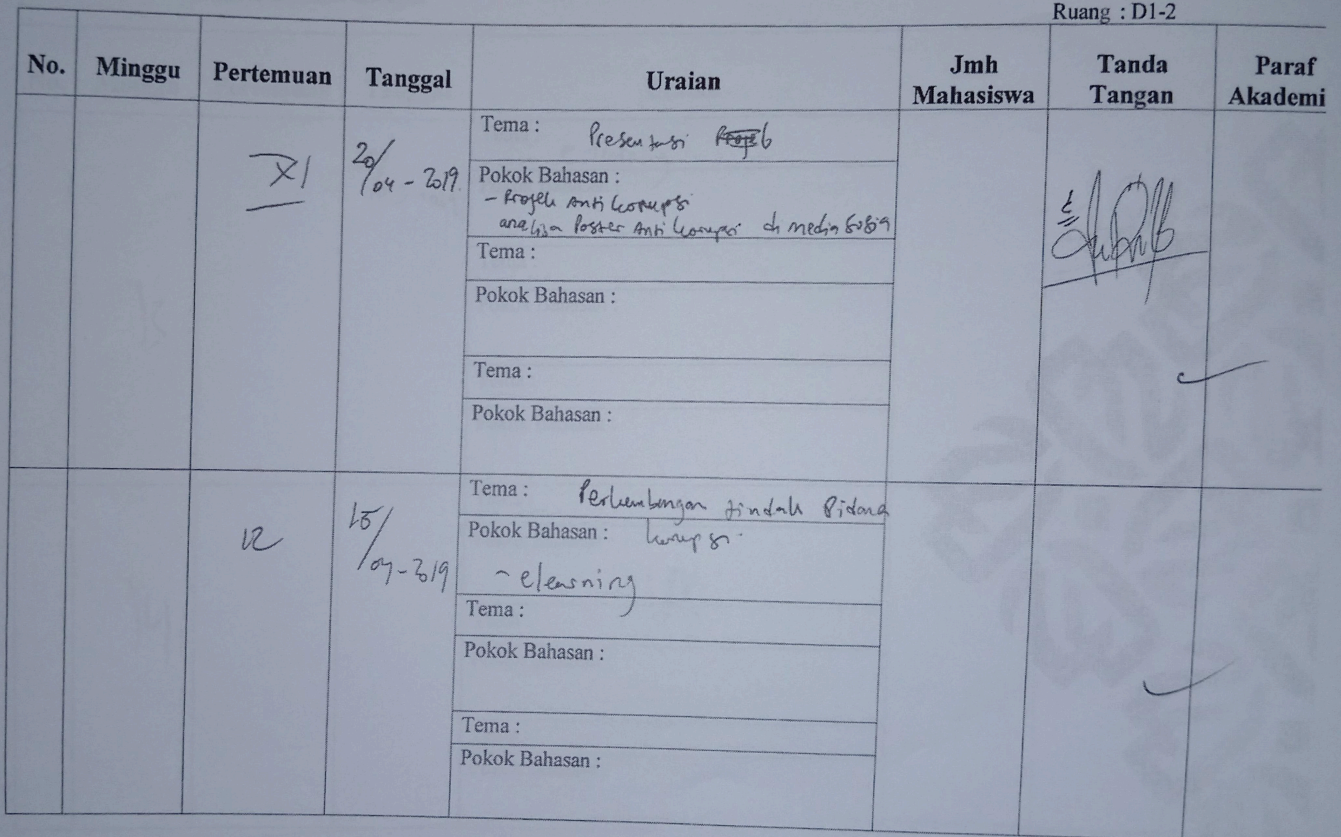 Ruang : D1-2
No. Minggu Pertemuan Tanggal Uraian Jmh Mahasiswa Tanda Tangan Paraf Akademi
Tema : Presentasi
XI 20/04-2019 Pokok Bahasan :
- Projek Anti korupsi
analisa Poster Anti korupsi di media sosia
Tema :
Pokok Bahasan :
Tema :
Pokok Bahasan :
Tema : Perkembangan tindak Pidana
12 /04-2019 Pokok Bahasan : korupsi
- elearning
Tema :
Pokok Bahasan :
Tema :
Pokok Bahasan :